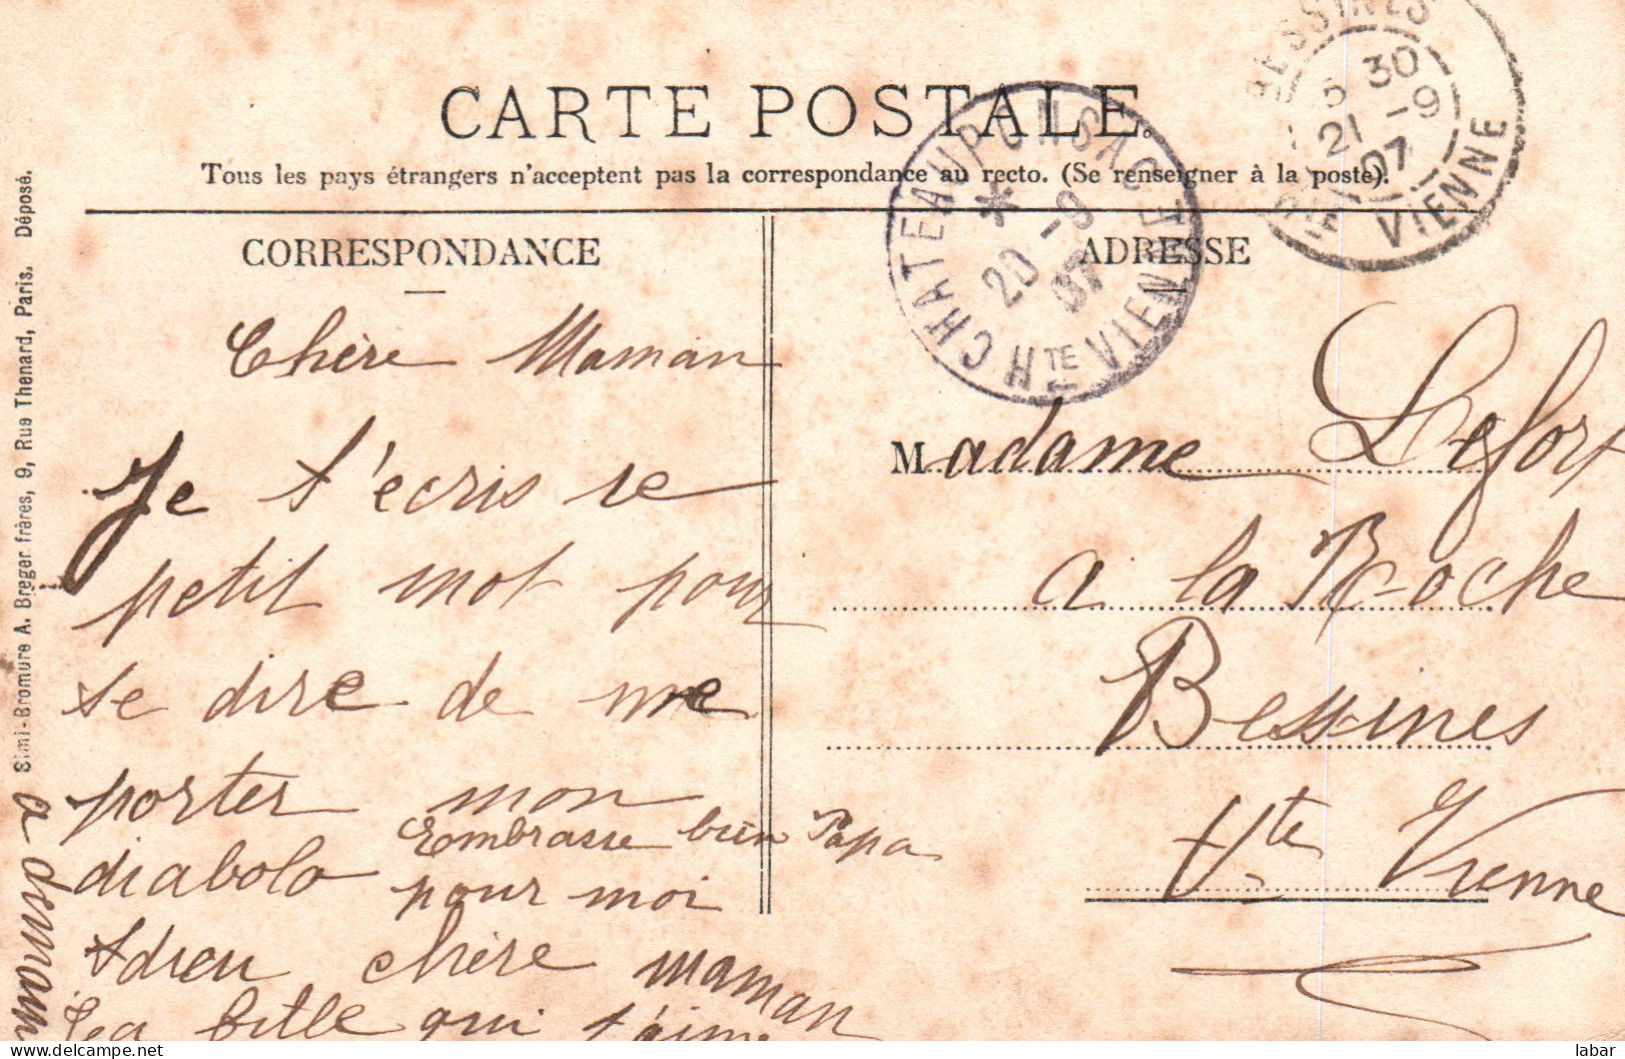 CARTE POSTALE.
Tous les pays étrangers n'acceptent pas la correspondance au recto. (Se renseigner à la poste).
CORRESPONDANCE
Chère Maman
Je t'écris ce
petit mot pour
te dire de me
porter mon
diabolo
Embrasse bien Papa
pour moi
Adieu chère maman
ta fille qui t'aime
a demain
Simi-Bromure A. Breger frères, 9, Rue Thenard, Paris. Déposé.
CHATEAUPONSAC HTE VIENNE
* 20 -9 07
BESSINES HTE VIENNE
5 30
21 -9
07
ADRESSE
Madame Lefort
a la Roche
Bessines
Hte Vienne
labar